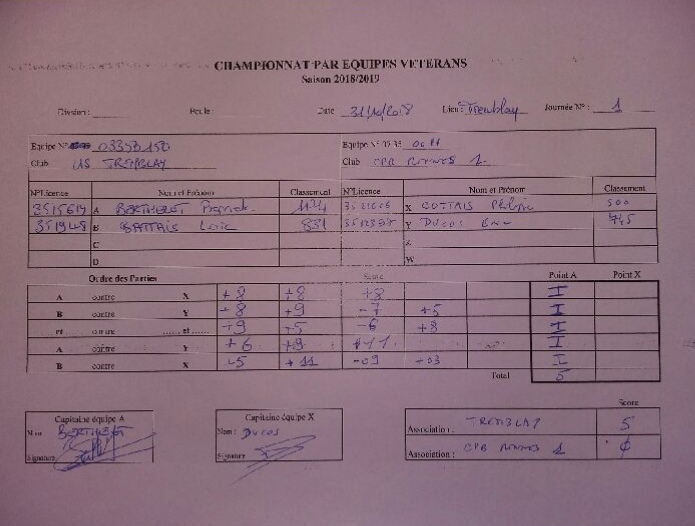 CHAMPIONNAT PAR EQUIPES VETERANS
Saison 2018/2019
Division : Poule : Date 31/10/2018 Lieu : Tremblay Journée N° : 1
Equipe N° 03350150 Equipe N° 0335
Club US TREMBLAY Club CPB RENNES 1
N°Licence Nom et Prénom Classement N°Licence Nom et Prénom Classement
3515614 A BERTHELOT X GOTTAIS Philippe 500
351948 B BATTAIS Loïc 831 Y DUCOS 745
C Z
D W
Ordre des Parties Score Point A Point X
A contre X +8 +8 +8 I
B contre Y +8 +9 -7 +5 I
et contre ........ et ........ +9 +5 -6 +8 I
A contre Y +6 +9 +11 I
B contre X -5 +11 -09 +03 I
Total 5
Score
Capitaine équipe A Capitaine équipe X
Nom : BERTHELOT Nom : DUCOS
Signature Signature
Association : TREMBLAY 5
Association : CPB RENNES 1 0